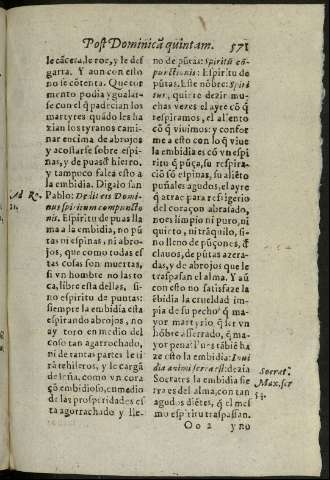 Post Dominicã quintam. 571
le cãcera, le roe, y le des
garta. Y aun con esto
no se cõtenta. Que tor
mento podia ygualar-
se con el q̃ padecian los
martyres quãdo les ha
zian los tyranos cami
nar encima de abrojos
y acostarse sobre espi-
nas, y de puas de hierro,
y tampoco falta esto a
la embidia. Digalo san
Pablo: Dedit eis Domi-
nus spiritum compuncti
nis. Espiritu de puas lla
ma a la embidia, no pũ
tas ni espinas, ni abro-
jos, que como todas es
tas cosas son muertas,
si vn hombre no las to
ca, libre esta dellas, si-
no espiritu de puntas:
siempre la embidia esta
espirando abrojos, no
ay toro en medio del
coso tan agarrochado,
ni de tantas partes le ti
rã rehileros, y le cargã
de leña, como vn cora-
çõ embidioso, en medio
de las prosperidades es
ta agorrachado y lle-
Ad Ro.
11.
no de pũtas: Spiritũ cõ-
punctionis: Espiritu de
pũtas. Este nõbre: Spiri
tus, quiere dezir mu-
chas vezes el ayre cõ q̃
respiramos, el aliento
cõ q̃ viuimos: y confor
me a esto con lo q̃ viue
la embidia es cõ vn espi
ritu q̃ pũça, su respira-
ciõ sõ espinas, su aliẽto
puñales agudos, el ayre
q̃ atrae para refrigerio
del coraçon abrasado,
no es limpio ni puro, ni
quieto, ni trãquilo, si-
no lleno de pũçones, d̃
clauos, de pũtas azera-
das, y de abrojos que le
traspasan el alma. Y aũ
con esto no satisfaze la
ẽbidia la crueldad im
pia de su pecho q̃ ma-
yor martyrio q̃ ser vn
hõbre asserrado, q̃ ma-
yor pena? Pues tãbiẽ ha
ze esto la embidia: Inui
dia animi serra est: dezia
Socrates la embidia sie
rra es del alma, con tan
agudos diẽtes, q̃ el mes
mo espiritu traspassan.
Socrat.
Max. ser
54.
Oo 2 y no